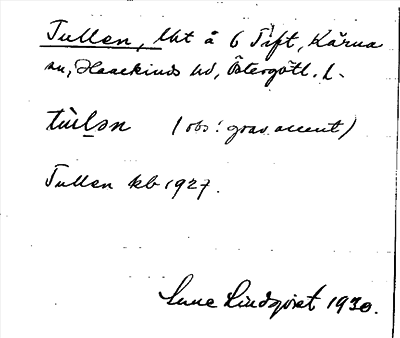 Tullen, lht å 6 Tift, Kärna
sn, Hanekinds hd, Östergötl. l.
tùlən (obs! grav accent)
Tullen kb 1927.
Sune Lindqvist 1930.